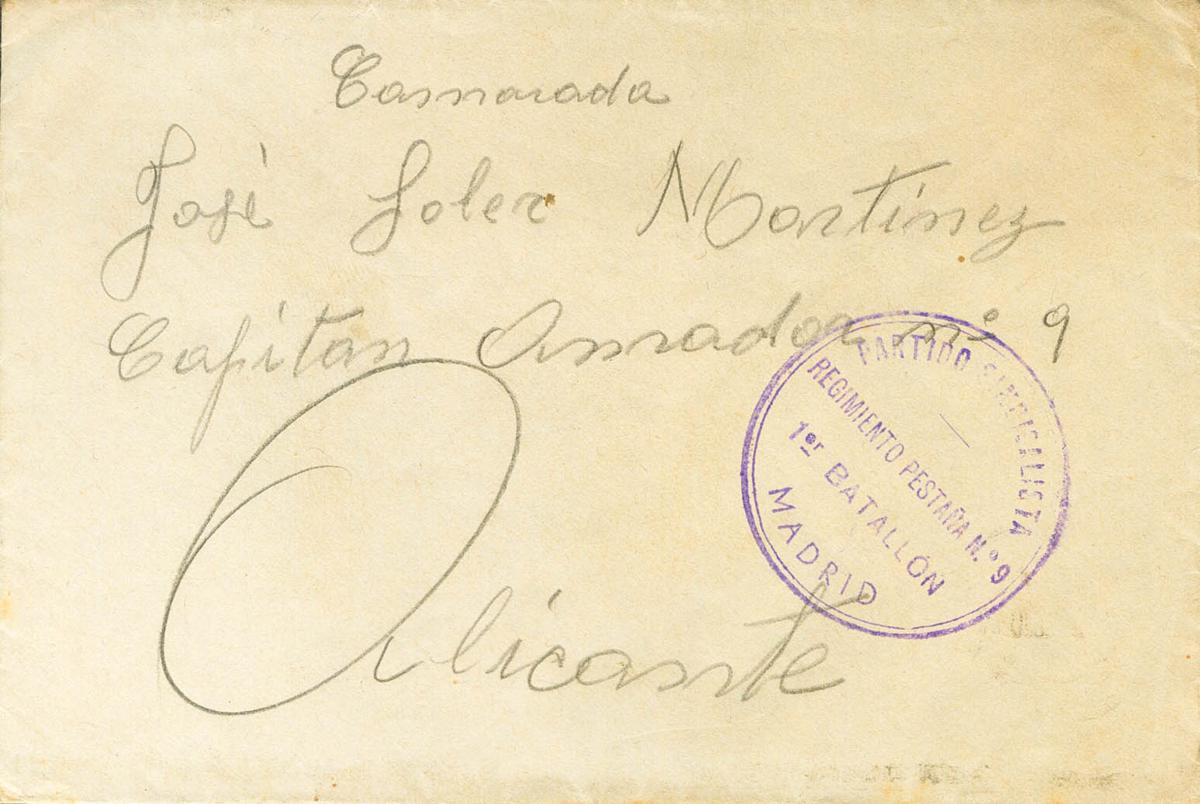 Camarada
José Soler Martínez
Capitán Amador nº 9
Alicante
PARTIDO SINDICALISTA
REGIMIENTO PESTAÑA N.º 9
1er BATALLÓN
MADRID